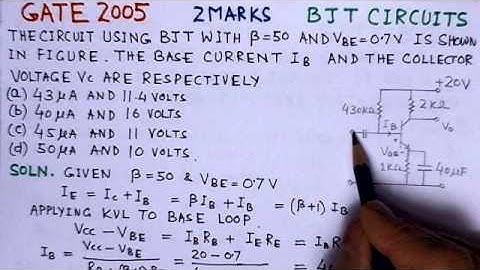 GATE 2005 2 MARKS BJT CIRCUITS
THE CIRCUIT USING BJT WITH β=50 AND VBE=0.7V IS SHOWN
IN FIGURE. THE BASE CURRENT IB AND THE COLLECTOR
VOLTAGE VC ARE RESPECTIVELY
(a) 43 μA AND 11.4 VOLTS
(b) 40 μA AND 16 VOLTS
(c) 45 μA AND 11 VOLTS
(d) 50 μA AND 10 VOLTS
+20V
430KΩ
2KΩ
IB
Vo
VBE
1KΩ
40μF
SOLN. GIVEN β=50 & VBE=0.7V
IE = IC + IB = βIB + IB = (β+1) IB
APPLYING KVL TO BASE LOOP
VCC - VBE = IB RB + IE RE = IB
IB = VCC - VBE = 20 - 0.7 =